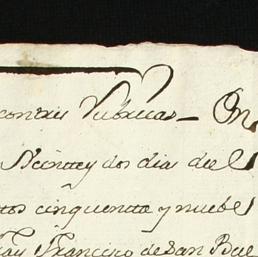 contris Rubricas _ En
Veintey dos dias del
tos cinquenta y nuebe
Fray Francisco de San Bue